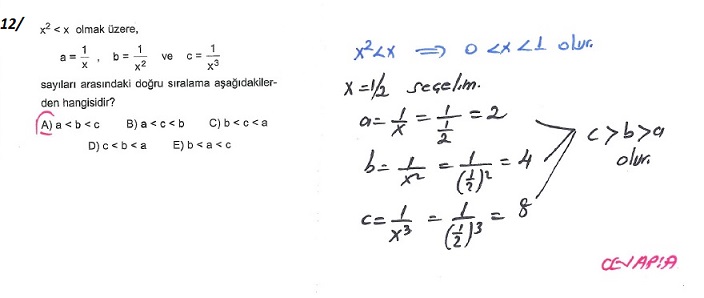 12/ x² < x olmak üzere,
a = 1/x , b = 1/x² ve c = 1/x³
sayıları arasındaki doğru sıralama aşağıdakiler-
den hangisidir?
A) a < b < c B) a < c < b C) b < c < a
D) c < b < a E) b < a < c
x² < x ⇒ 0 < x < 1 olur.
x = 1/2 seçelim.
a = 1/x = 1/(1/2) = 2
b = 1/x² = 1/(1/2)² = 4
c = 1/x³ = 1/(1/2)³ = 8
c > b > a
olur.
CEVAP:A